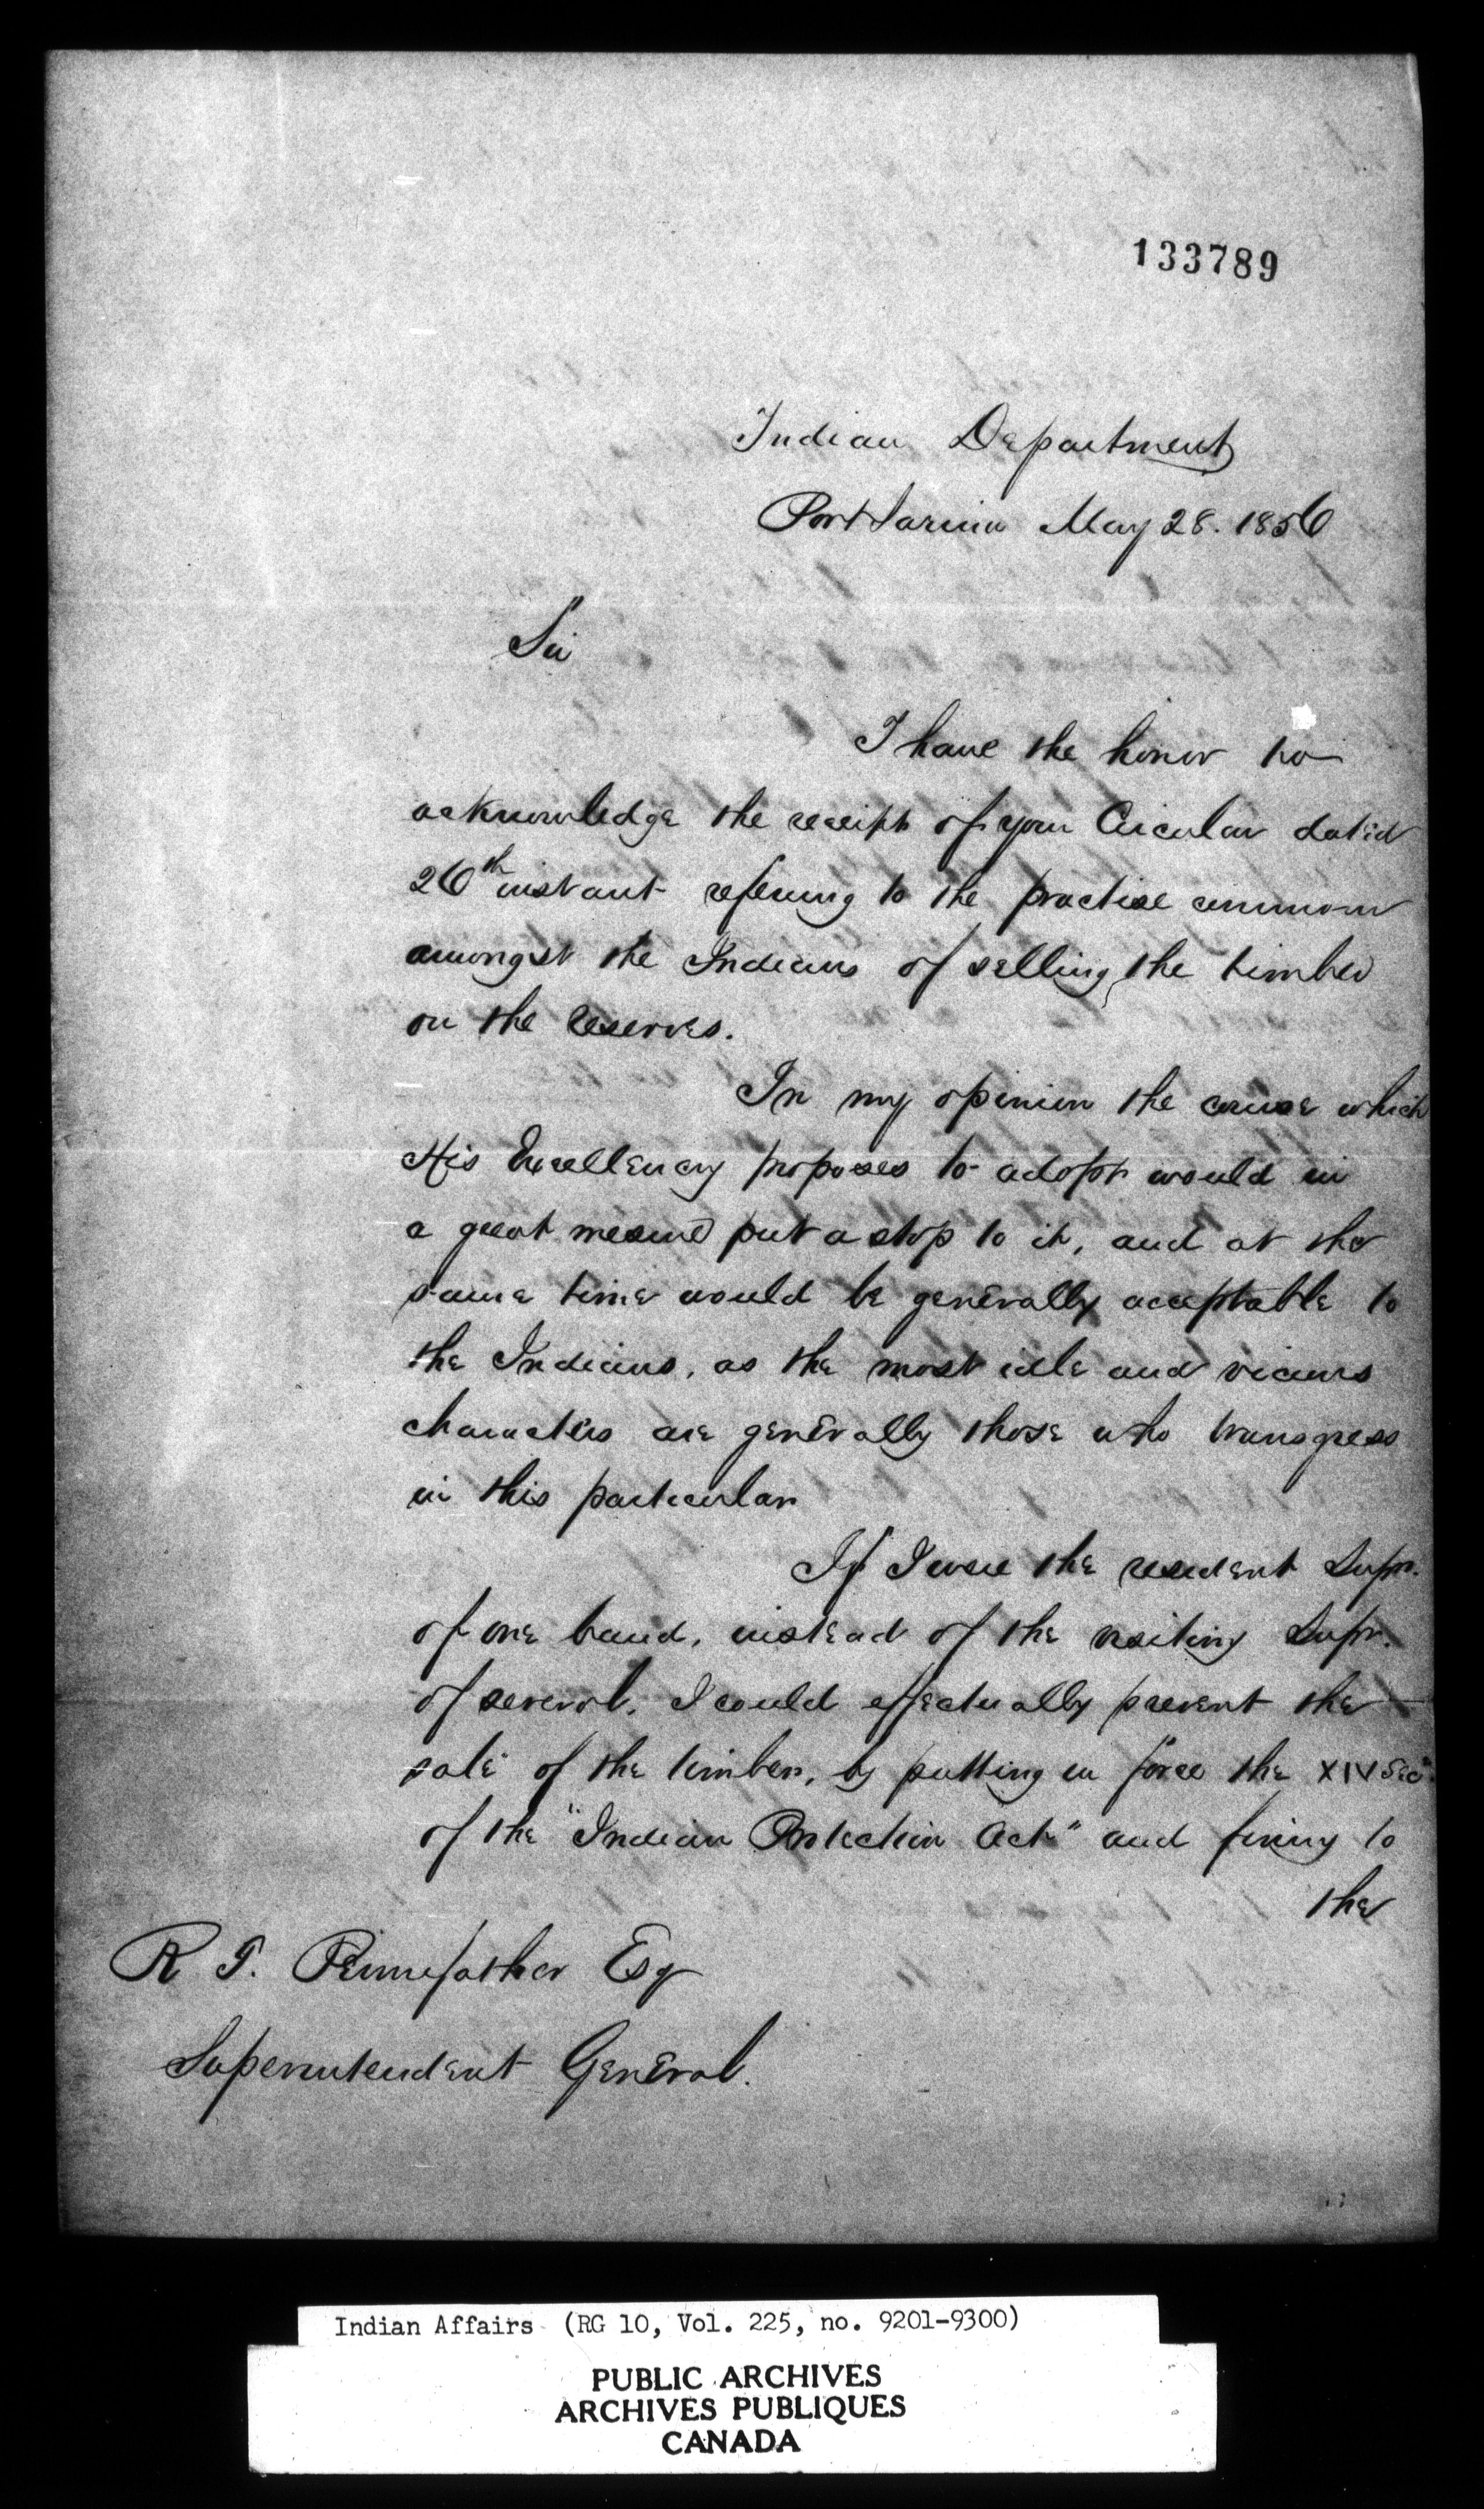 133789
Indian Department
Port Sarnia May 28. 1856
Sir
I have the honor to
acknowledge the receipt of your Circular dated
26th instant refering to the practise common
amongst the Indians of selling the timber
on the reserves.
In my opinion the course which
His Excellency proposes to adopt would in
a great measure put a stop to it, and at the
same time would be generally acceptable to
the Indians, as the most idle and vicious
characters are generally those who transgress
in this particular
If I were the resident Supr.
of one band, instead of the visiting Supr.
of several, I could effectually prevent the
sale of the timber, by putting in force the XIV Secn.
of the "Indian Protection Act" and fining to
the
R T. Pennefather Esq
Superintendent General.
Indian Affairs (RG 10, Vol. 225, no. 9201-9300)
PUBLIC ARCHIVES
ARCHIVES PUBLIQUES
CANADA